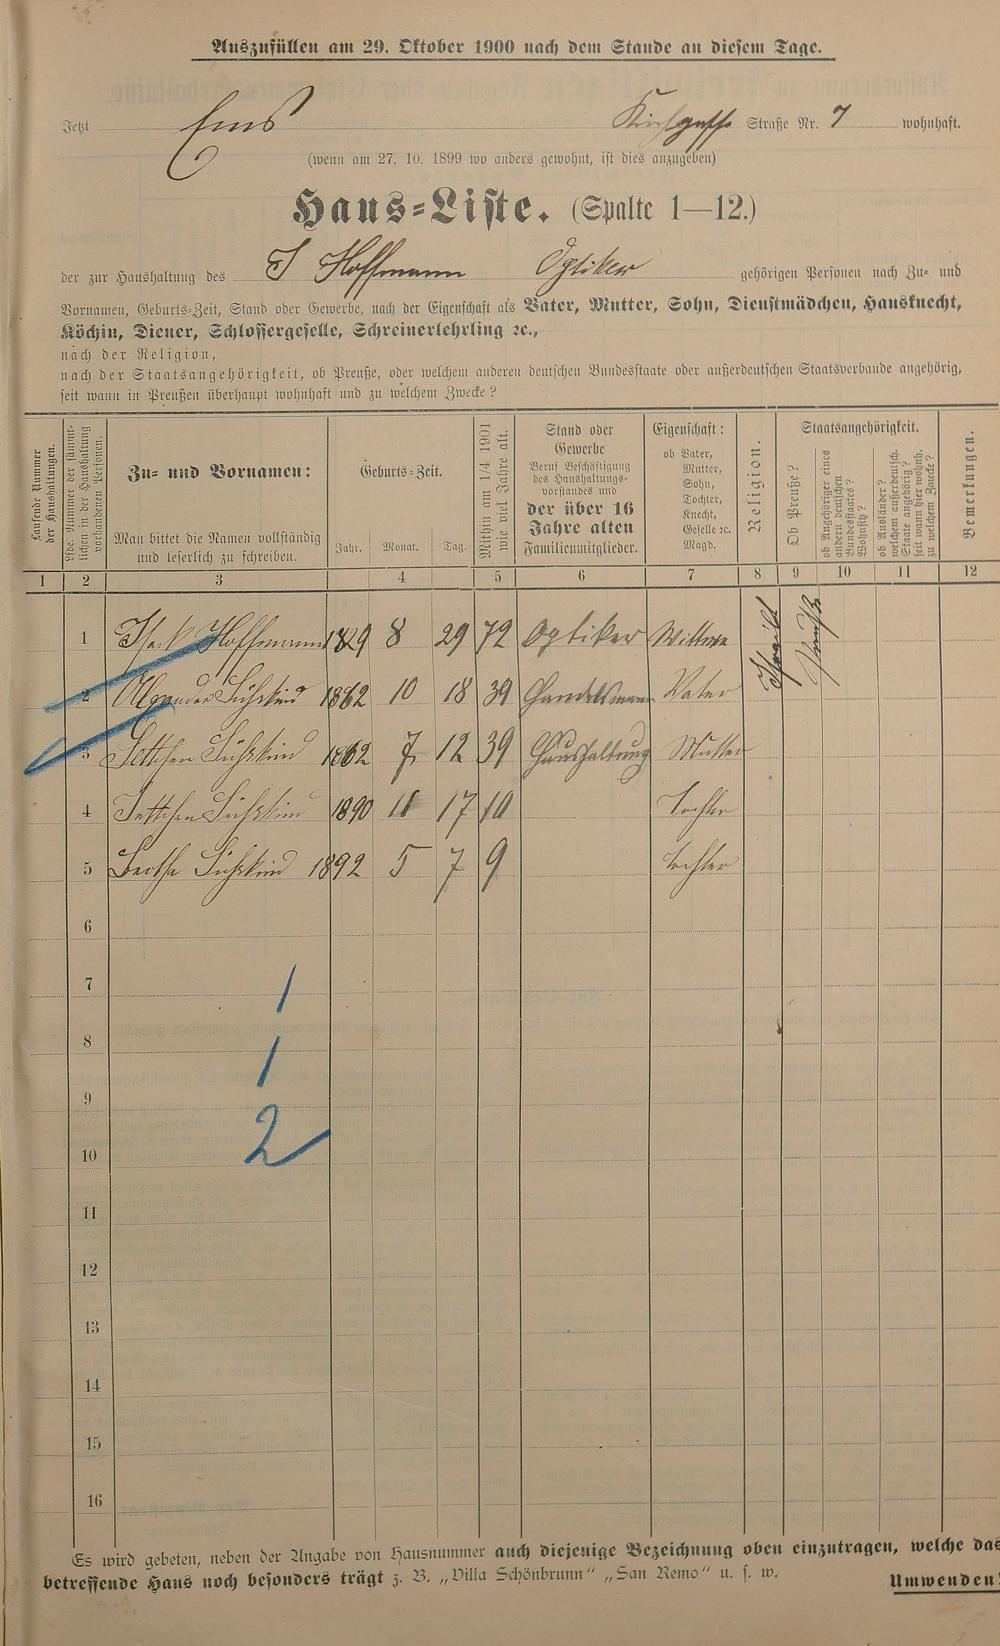 Auszufüllen am 29. Oktober 1900 nach dem Stande an diesem Tage.
Jetzt Ems Kirchgasse Straße Nr. 7 wohnhaft.
(wenn am 27. 10. 1899 wo anders gewohnt, ist dies anzugeben)
Haus-Liste. (Spalte 1—12.)
der zur Haushaltung des J Hoffmann Optiker gehörigen Personen nach Zu- und
Vornamen, Geburts-Zeit, Stand oder Gewerbe, nach der Eigenschaft als Vater, Mutter, Sohn, Dienstmädchen, Hausknecht,
Köchin, Diener, Schlossergeselle, Schreinerlehrling ꝛc.,
nach der Religion,
nach der Staatsangehörigkeit, ob Preuße, oder welchem anderen deutschen Bundesstaate oder außerdeutschen Staatsverbande angehörig,
seit wann in Preußen überhaupt wohnhaft und zu welchem Zwecke?
Laufende Nummer
der Haushaltungen.
Lfde. Nummer der sämmt-
lichen in der Haushaltung
vorhandenen Personen.
Zu- und Vornamen:
Man bittet die Namen vollständig
und leserlich zu schreiben.
Geburts-Zeit.
Jahr. Monat. Tag.
Mithin am 1/4 1901
wie viel Jahre alt.
Stand oder
Gewerbe
Beruf Beschäftigung
des Haushaltungs-
vorstandes und
der über 16
Jahre alten
Familienmitglieder.
Eigenschaft:
ob Vater,
Mutter,
Sohn,
Tochter,
Knecht,
Geselle ꝛc.
Magd.
Religion.
Staatsangehörigkeit.
Ob Preuße?
ob Angehöriger eines
andern deutschen
Bundesstaates?
Wohnsitz?
ob Ausländer?
welchem außerdeutsch.
Staate angehörig?
seit wann hier wohnh.
zu welchem Zwecke?
Bemerkungen.
1 2 3 4 5 6 7 8 9 10 11 12
1 Isack Hoffmann 1829 8 29 72 Optiker Israelit Preuße
2 Alexander Süßkind 1862 10 18 39 Handelsmann Vater
3 Settchen Süßkind 1862 7 12 39 Haushaltung Mutter
4 Jettchen Süßkind 1890 11 17 10 Tochter
5 Bertha Süßkind 1892 5 7 9 Tochter
6
7 1
8 1
9
10 2
11
12
13
14
15
16
Es wird gebeten, neben der Angabe von Hausnummer auch diejenige Bezeichnung oben einzutragen, welche das
betreffende Haus noch besonders trägt z. B. „Villa Schönbrunn“ „San Remo“ u. s. w.
Umwenden!